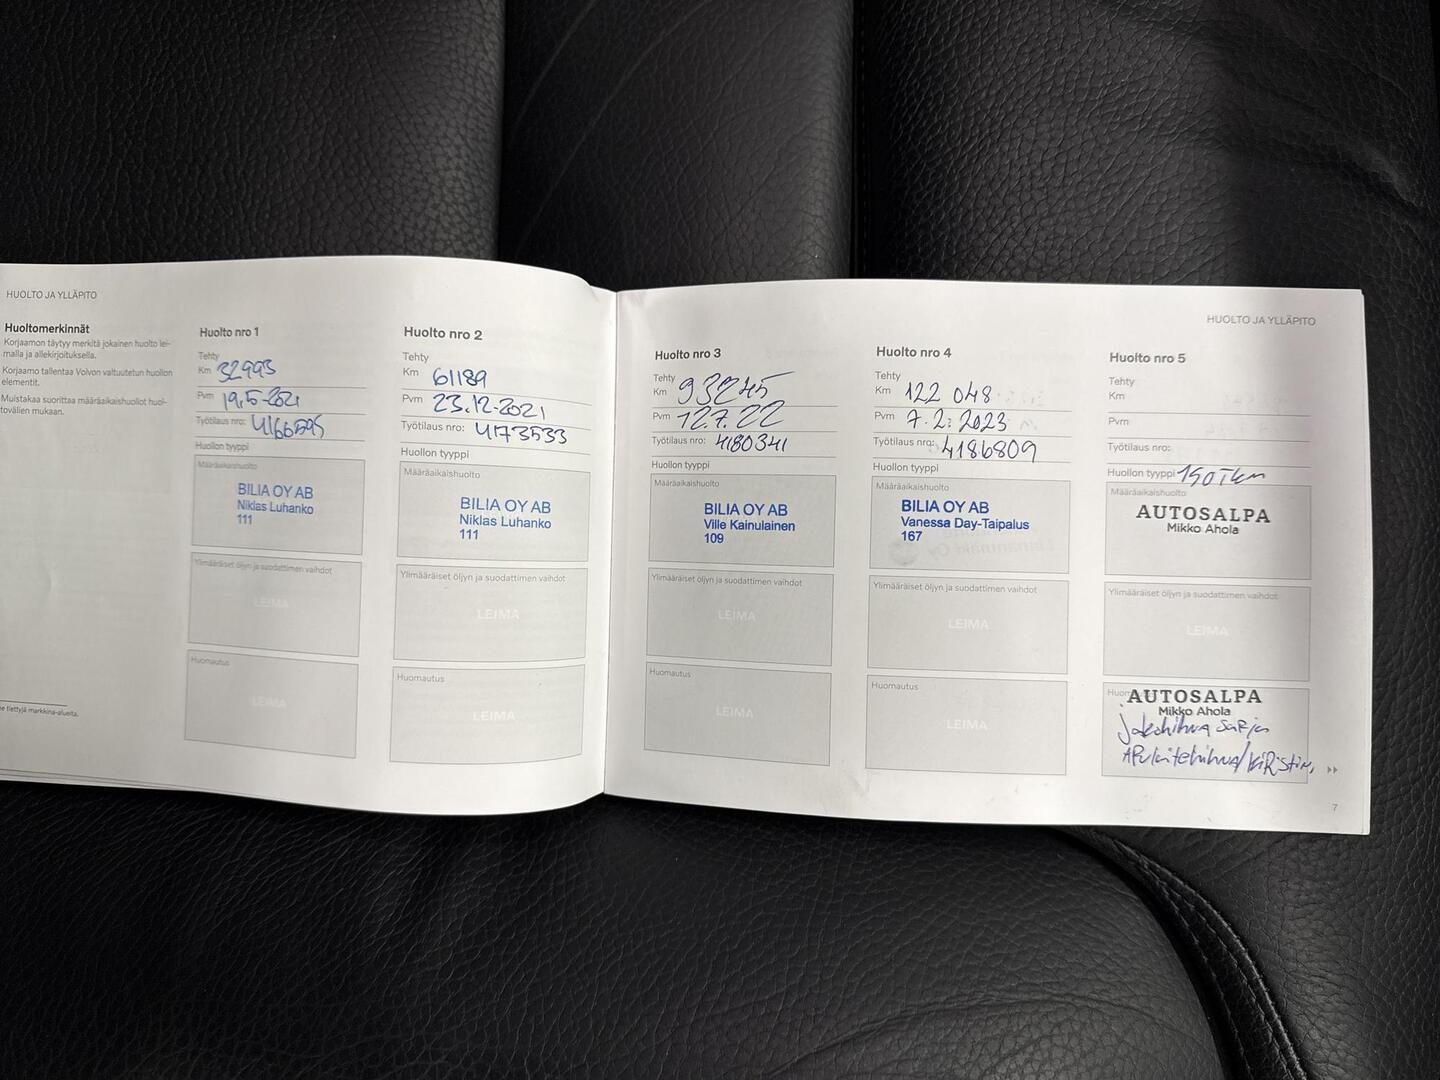 HUOLTO JA YLLÄPITO
Huoltomerkinnät
Korjaamon täytyy merkitä jokainen huolto lei-
malla ja allekirjoituksella.
Korjaamo tallentaa Volvon valtuutetun huollon
elementit.
Muistakaa suorittaa määräaikaishuollot huol-
tovälien mukaan.
tiettyjä markkina-alueita.
Huolto nro 1
Tehty
Km 32993
Pvm 19.5-2021
Työtilaus nro: 4166595
Huollon tyyppi
Määräaikaishuolto
BILIA OY AB
Niklas Luhanko
111
Ylimääräiset öljyn ja suodattimen vaihdot
LEIMA
Huomautus
LEIMA
Huolto nro 2
Tehty
Km 61189
Pvm 23.12-2021
Työtilaus nro: 4173533
Huollon tyyppi
Määräaikaishuolto
BILIA OY AB
Niklas Luhanko
111
Ylimääräiset öljyn ja suodattimen vaihdot
LEIMA
Huomautus
LEIMA
HUOLTO JA YLLÄPITO
Huolto nro 3
Tehty
Km 93245
Pvm 12.7.22
Työtilaus nro: 4180341
Huollon tyyppi
Määräaikaishuolto
BILIA OY AB
Ville Kainulainen
109
Ylimääräiset öljyn ja suodattimen vaihdot
LEIMA
Huomautus
LEIMA
Huolto nro 4
Tehty
Km 122 048
Pvm 7.2.2023
Työtilaus nro: 4186809
Huollon tyyppi
Määräaikaishuolto
BILIA OY AB
Vanessa Day-Taipalus
167
Ylimääräiset öljyn ja suodattimen vaihdot
LEIMA
Huomautus
LEIMA
Huolto nro 5
Tehty
Km
Pvm
Työtilaus nro:
Huollon tyyppi 150Tkm
Määräaikaishuolto
AUTOSALPA
Mikko Ahola
Ylimääräiset öljyn ja suodattimen vaihdot
LEIMA
AUTOSALPA
Mikko Ahola
jakohihna sarja
Apulaitehihna/kiristin,
7